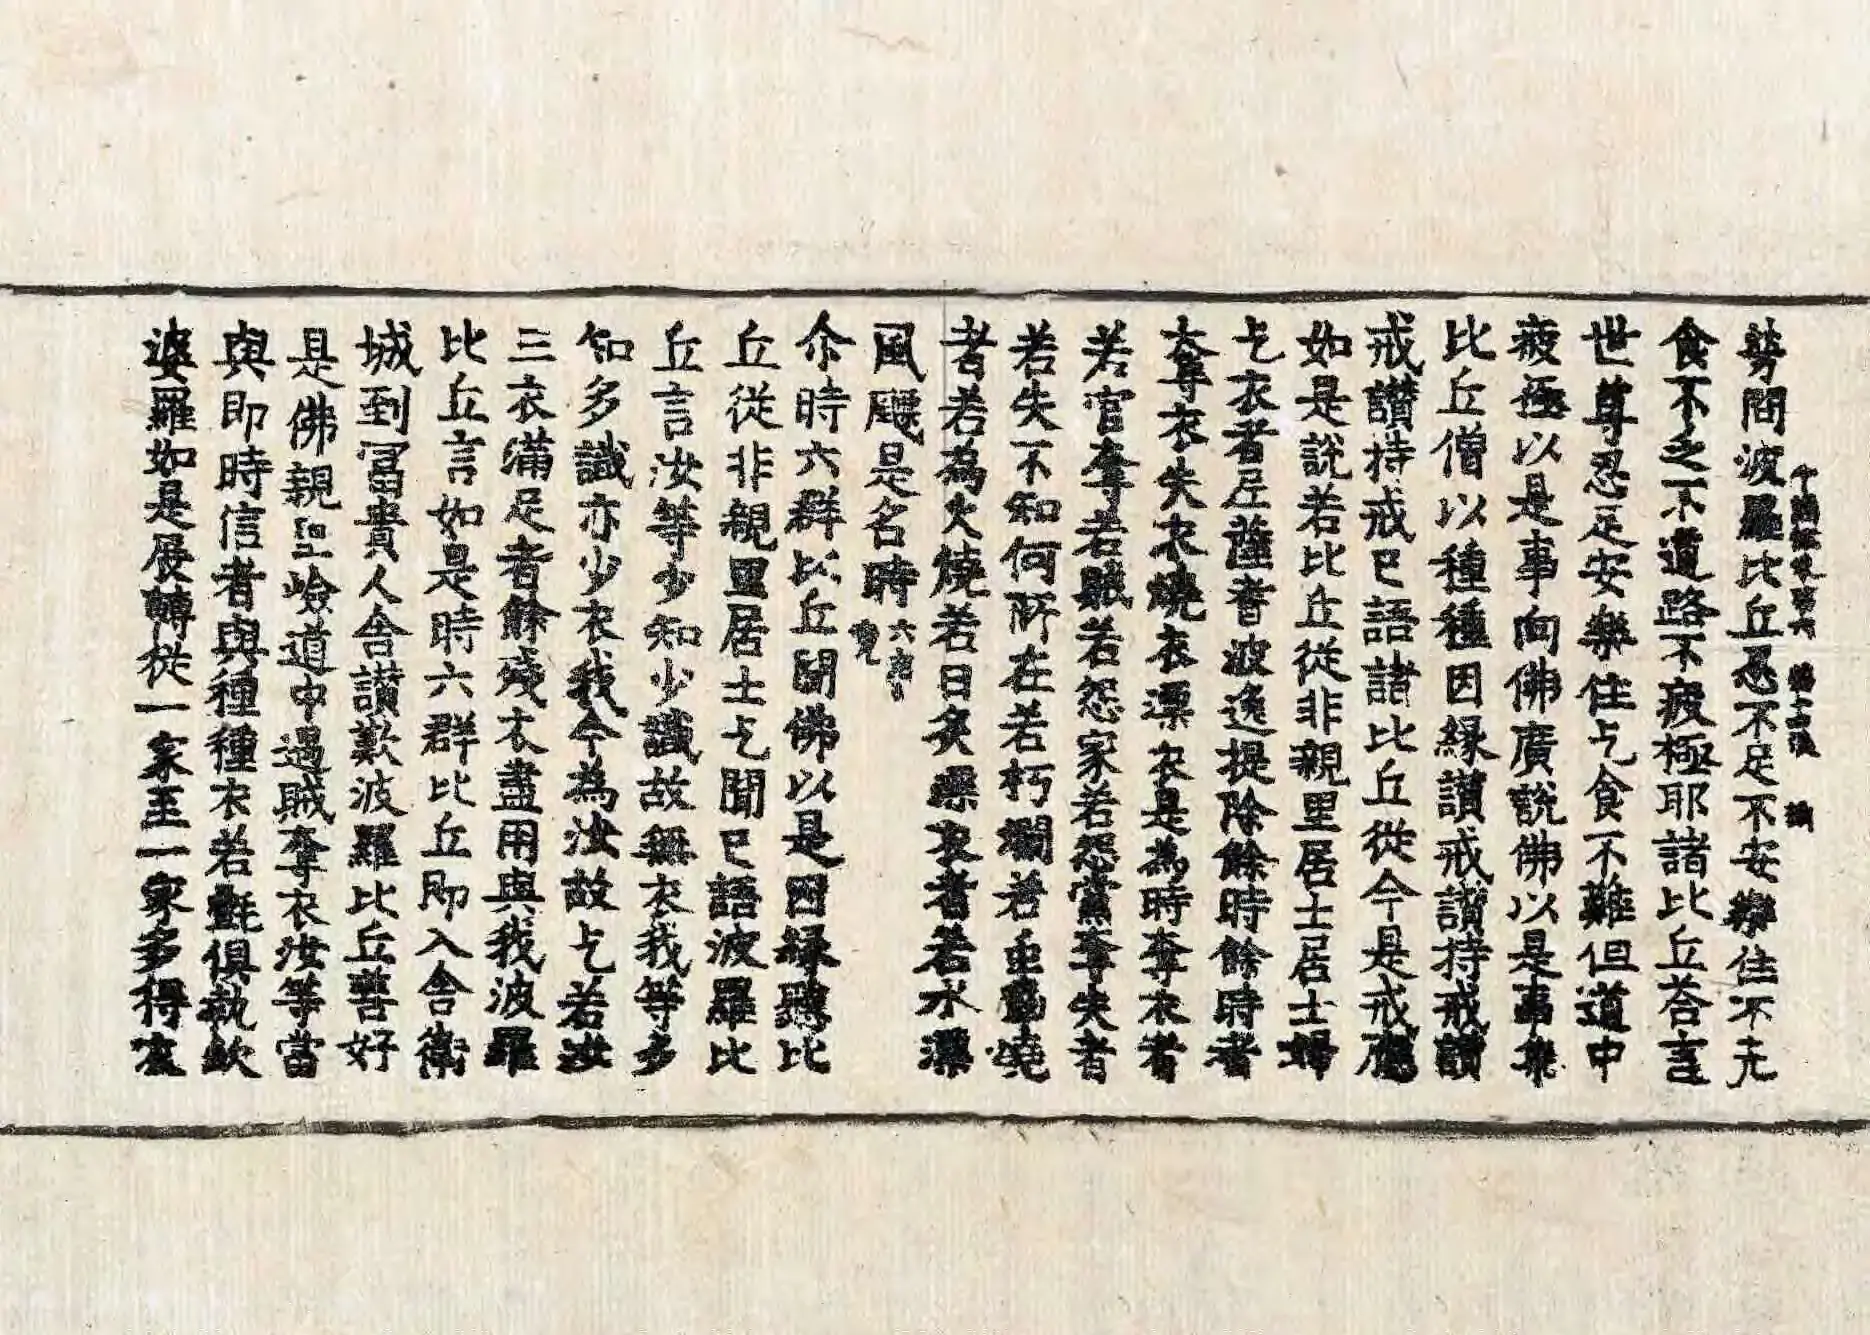 勞問波羅比丘忍不足不安樂住不乞
食不乏不道路不疲極耶諸比丘荅言
世尊忍足安樂住乞食不難但道中
疲極以是事向佛廣說佛以是事集
比丘僧以種種因緣讃戒讃持戒讃
戒讃持戒已語諸比丘從今是戒應
如是說若比丘從非親里居士居士婦
乞衣者尼薩耆波逸提除餘時餘時者
奪衣失衣燒衣漂衣是為時奪衣者
若官奪若賊若怨家若怨黨奪失者
若失不知何所在若朽爛若虫齧燒
者若為火燒若日炙漂衣者若水漂
風飄是名時
尒時六群比丘聞佛以是因緣聽比
丘從非親里居士乞聞已語波羅比
丘言汝等少知少識故無衣我等多
知多識亦少衣我今為汝故乞若汝
三衣滿足者餘殘衣盡用與我波羅
比丘言如是時六群比丘即入舍衛
城到冨貴人舍讃歎波羅比丘善好
是佛親里嶮道中遇賊奪衣汝等當
與即時信者與種種衣若氎俱執欽
婆羅如是展轉從一家至一家多得衣